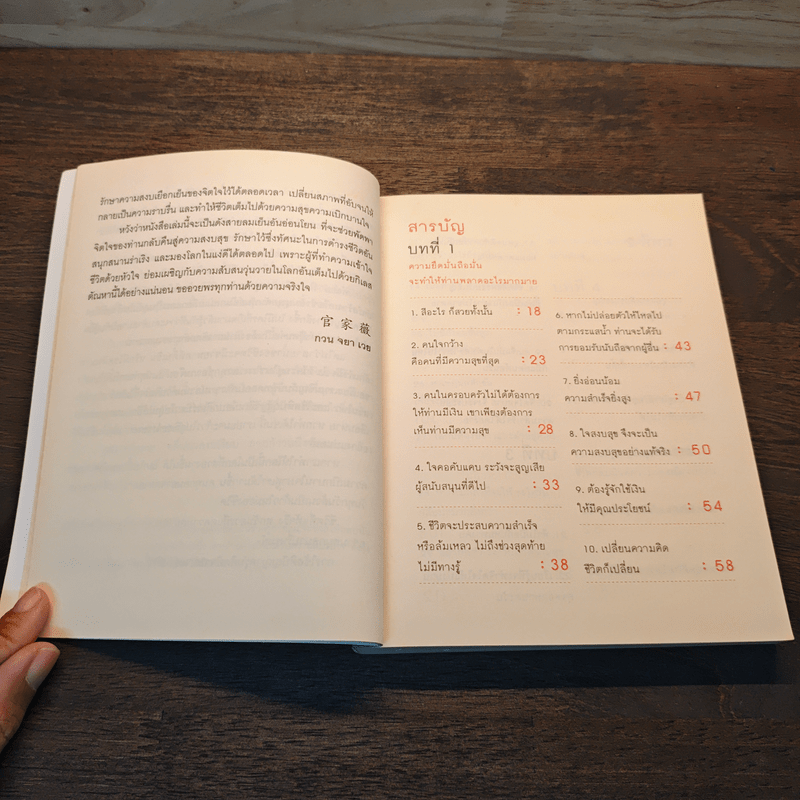 รักษาความสงบเยือกเย็นของจิตใจไว้ได้ตลอดเวลา เปลี่ยนสภาพที่อับจนให้
กลายเป็นความราบรื่น และทำให้ชีวิตเต็มไปด้วยความสุขความเบิกบานใจ
หวังว่าหนังสือเล่มนี้จะเป็นดังสายลมเย็นอันอ่อนโยน ที่จะช่วยพัดพา
จิตใจของท่านกลับคืนสู่ความสงบสุข รักษาไว้ซึ่งทัศนะในการดำรงชีวิตอัน
สนุกสนานร่าเริง และมองโลกในแง่ดีได้ตลอดไป เพราะผู้ที่ทำความเข้าใจ
ชีวิตด้วยหัวใจ ย่อมเผชิญกับความสับสนวุ่นวายในโลกอันเต็มไปด้วยกิเลส
ตัณหานี้ได้อย่างแน่นอน ขออวยพรทุกท่านด้วยความจริงใจ
官 家 薇
กวน จยา เวย
สารบัญ
บทที่ 1
ความยึดมั่นถือมั่น
จะทำให้ท่านพลาดอะไรมากมาย
1. สีอะไร ก็สวยทั้งนั้น : 18
2. คนใจกว้าง
คือคนที่มีความสุขที่สุด : 23
3. คนในครอบครัวไม่ได้ต้องการ
ให้ท่านมีเงิน เขาเพียงต้องการ
เห็นท่านมีความสุข : 28
4. ใจคอคับแคบ ระวังจะสูญเสีย
ผู้สนับสนุนที่ดีไป : 33
5. ชีวิตจะประสบความสำเร็จ
หรือล้มเหลว ไม่ถึงช่วงสุดท้าย
ไม่มีทางรู้ : 38
6. หากไม่ปล่อยตัวให้ไหลไป
ตามกระแสน้ำ ท่านจะได้รับ
การยอมรับนับถือจากผู้อื่น : 43
7. ยิ่งอ่อนน้อม
ความสำเร็จยิ่งสูง : 47
8. ใจสงบสุข จึงจะเป็น
ความสงบสุขอย่างแท้จริง : 50
9. ต้องรู้จักใช้เงิน
ให้มีคุณประโยชน์ : 54
10. เปลี่ยนความคิด
ชีวิตก็เปลี่ยน : 58